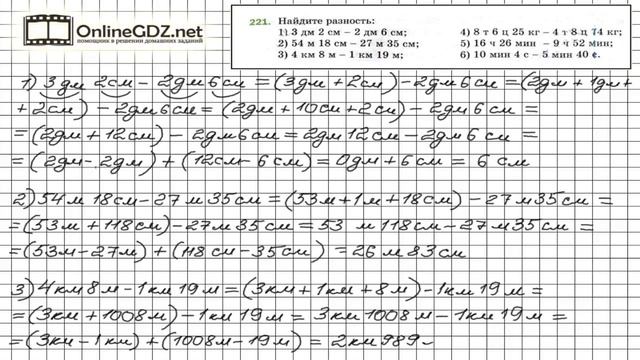 OnlineGDZ.net
помощник в решении домашних заданий
221. Найдите разность:
1) 3 дм 2 см – 2 дм 6 см;
2) 54 м 18 см – 27 м 35 см;
3) 4 км 8 м – 1 км 19 м;
4) 8 т 6 ц 25 кг – 4 т 8 ц 74 кг;
5) 16 ч 26 мин – 9 ч 52 мин;
6) 10 мин 4 с – 5 мин 40 с.
1) 3 дм 2 см – 2 дм 6 см = (3 дм + 2 см) – 2 дм 6 см = (2 дм + 1 дм +
+ 2 см) – 2 дм 6 см = (2 дм + 10 см + 2 см) – 2 дм 6 см =
= (2 дм + 12 см) – 2 дм 6 см = 2 дм 12 см – 2 дм 6 см =
= (2 дм – 2 дм) + (12 см – 6 см) = 0 дм + 6 см = 6 см
2) 54 м 18 см – 27 м 35 см = (53 м + 1 м + 18 см) – 27 м 35 см =
= (53 м + 118 см) – 27 м 35 см = 53 м 118 см – 27 м 35 см =
= (53 м – 27 м) + (118 см – 35 см) = 26 м 83 см
3) 4 км 8 м – 1 км 19 м = (3 км + 1 км + 8 м) – 1 км 19 м =
= (3 км + 1008 м) – 1 км 19 м = 3 км 1008 м – 1 км 19 м =
= (3 км – 1 км) + (1008 м – 19 м) = 2 км 989